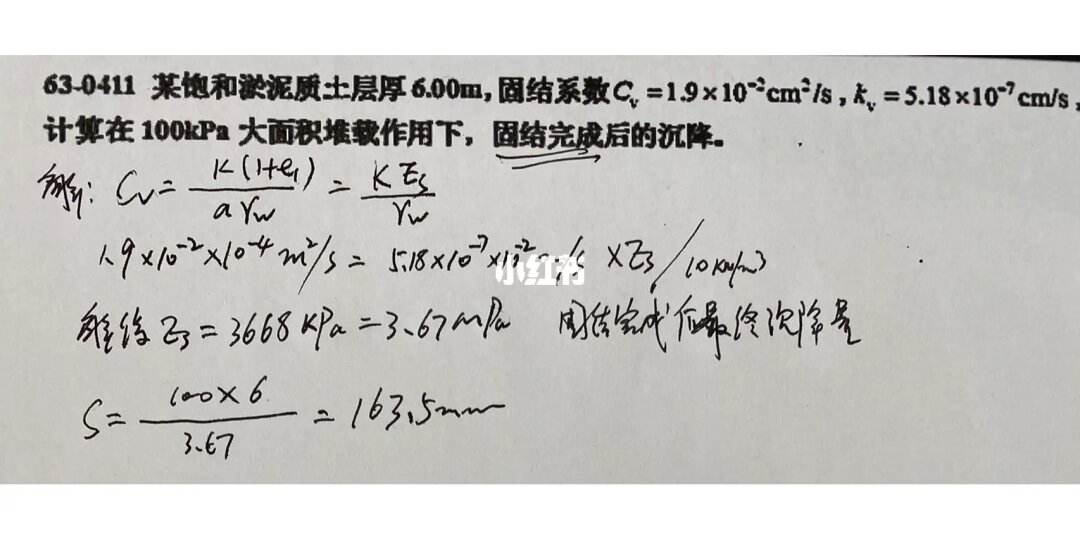 63-0411 某饱和淤泥质土层厚 6.00m, 固结系数 Cv =1.9×10⁻²cm²/s, kv =5.18×10⁻⁷cm/s,
计算在 100kPa 大面积堆载作用下，固结完成后的沉降。
解: Cv = K(1+e1) / aγw = K Es / γw
1.9×10⁻²×10⁻⁴ m²/s = 5.18×10⁻⁷×10⁻² m/s × Es / 10 kN/m³
小红书
解得 Es = 3668 kPa = 3.67 mPa 固结完成后最终沉降量
S = 100×6 / 3.67 = 163.5mm